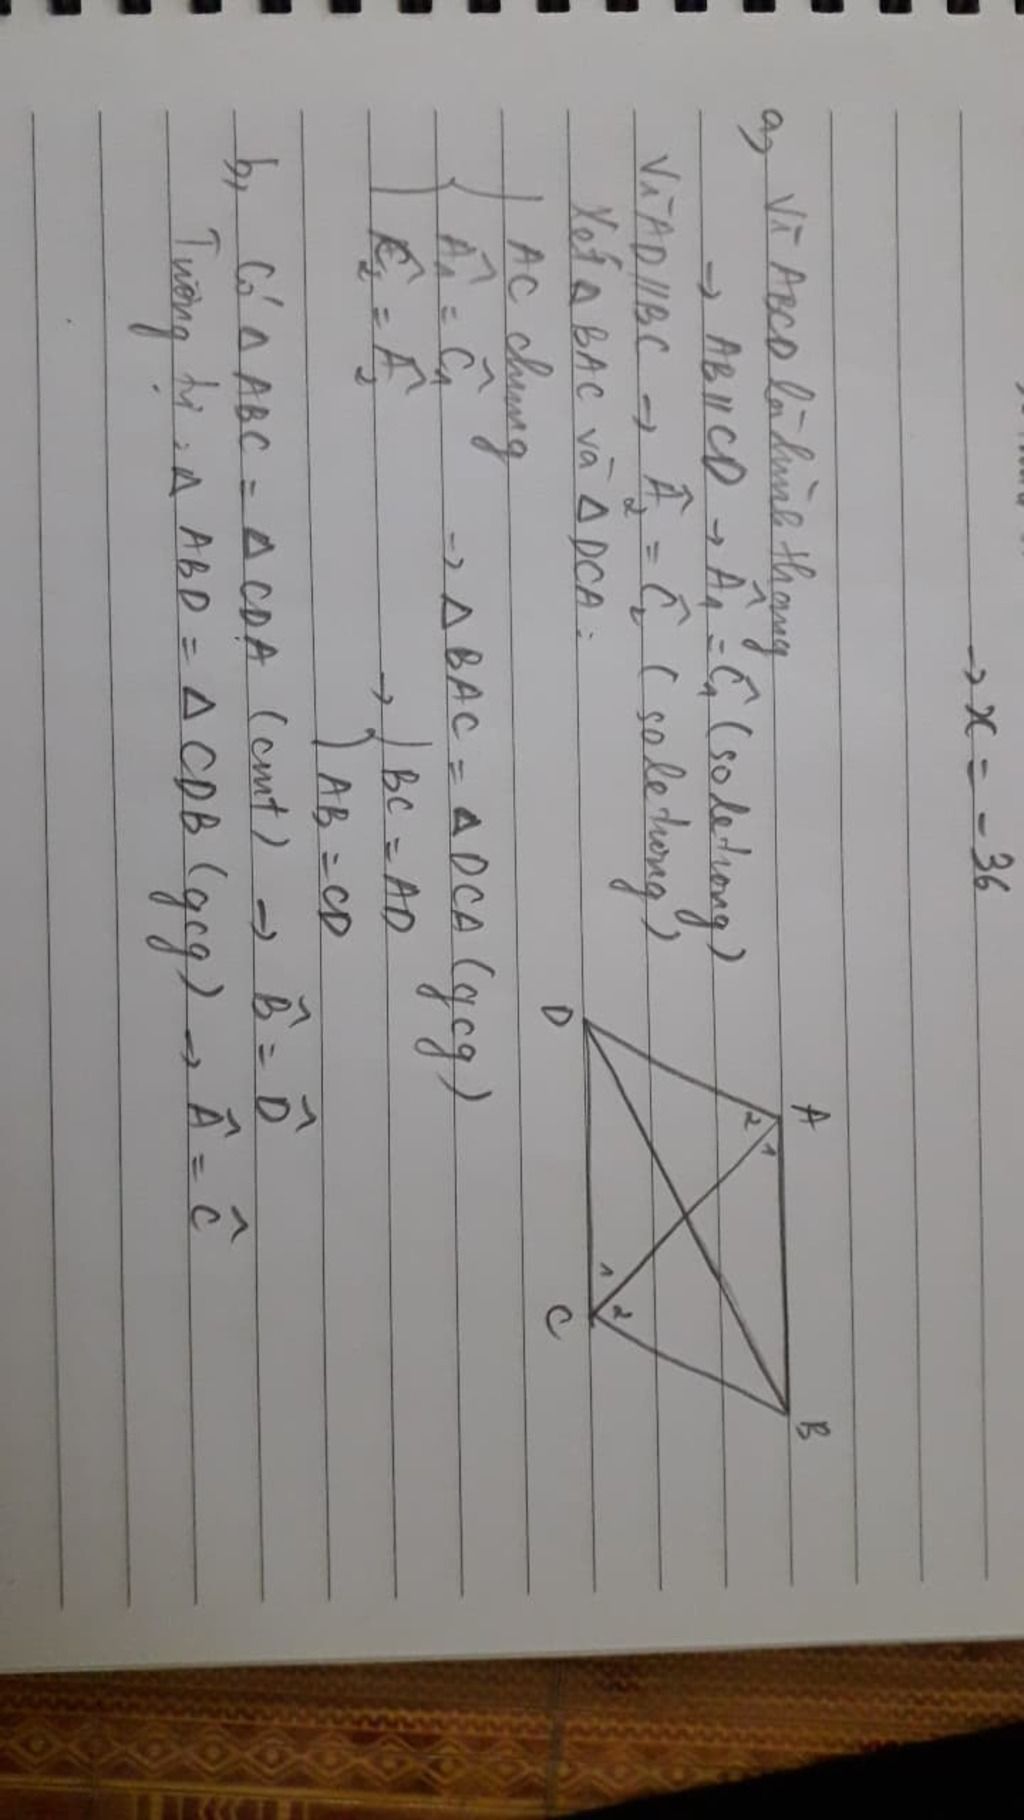 → x = -36
a, Vì ABCD là hình thang
→ AB // CD → Â₁ = Ĉ₁ (so le trong)
Vì AD // BC → Â₂ = Ĉ₂ (so le trong)
Xét Δ BAC và Δ DCA:
AC chung
Â₁ = Ĉ₁ → Δ BAC = Δ DCA (gcg)
Ĉ₂ = Â₂ → { BC = AD
AB = CD
b, Có Δ ABC = Δ CDA (cmt) → B̂ = D̂
Tương tự, Δ ABD = Δ CDB (gcg) → Â = Ĉ
A B
1 2
1 2
D C